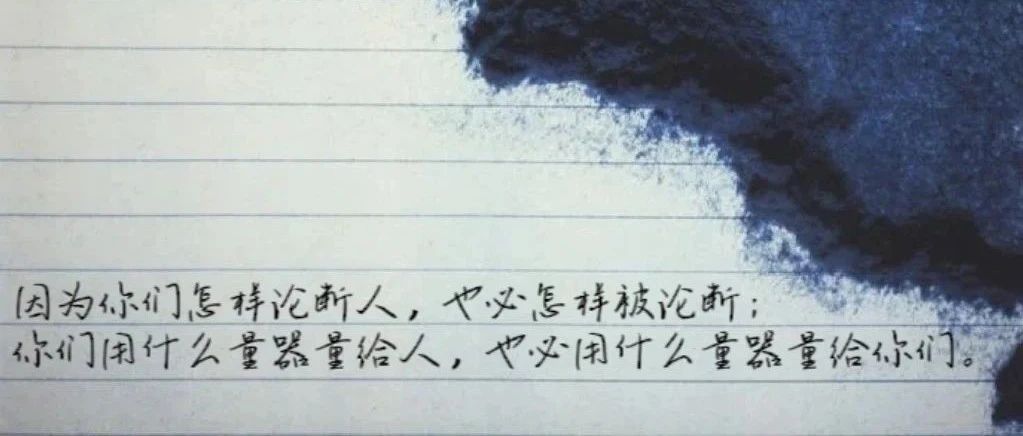 因为你们怎样论断人，也必怎样被论断；
你们用什么量器量给人，也必用什么量器量给你们。